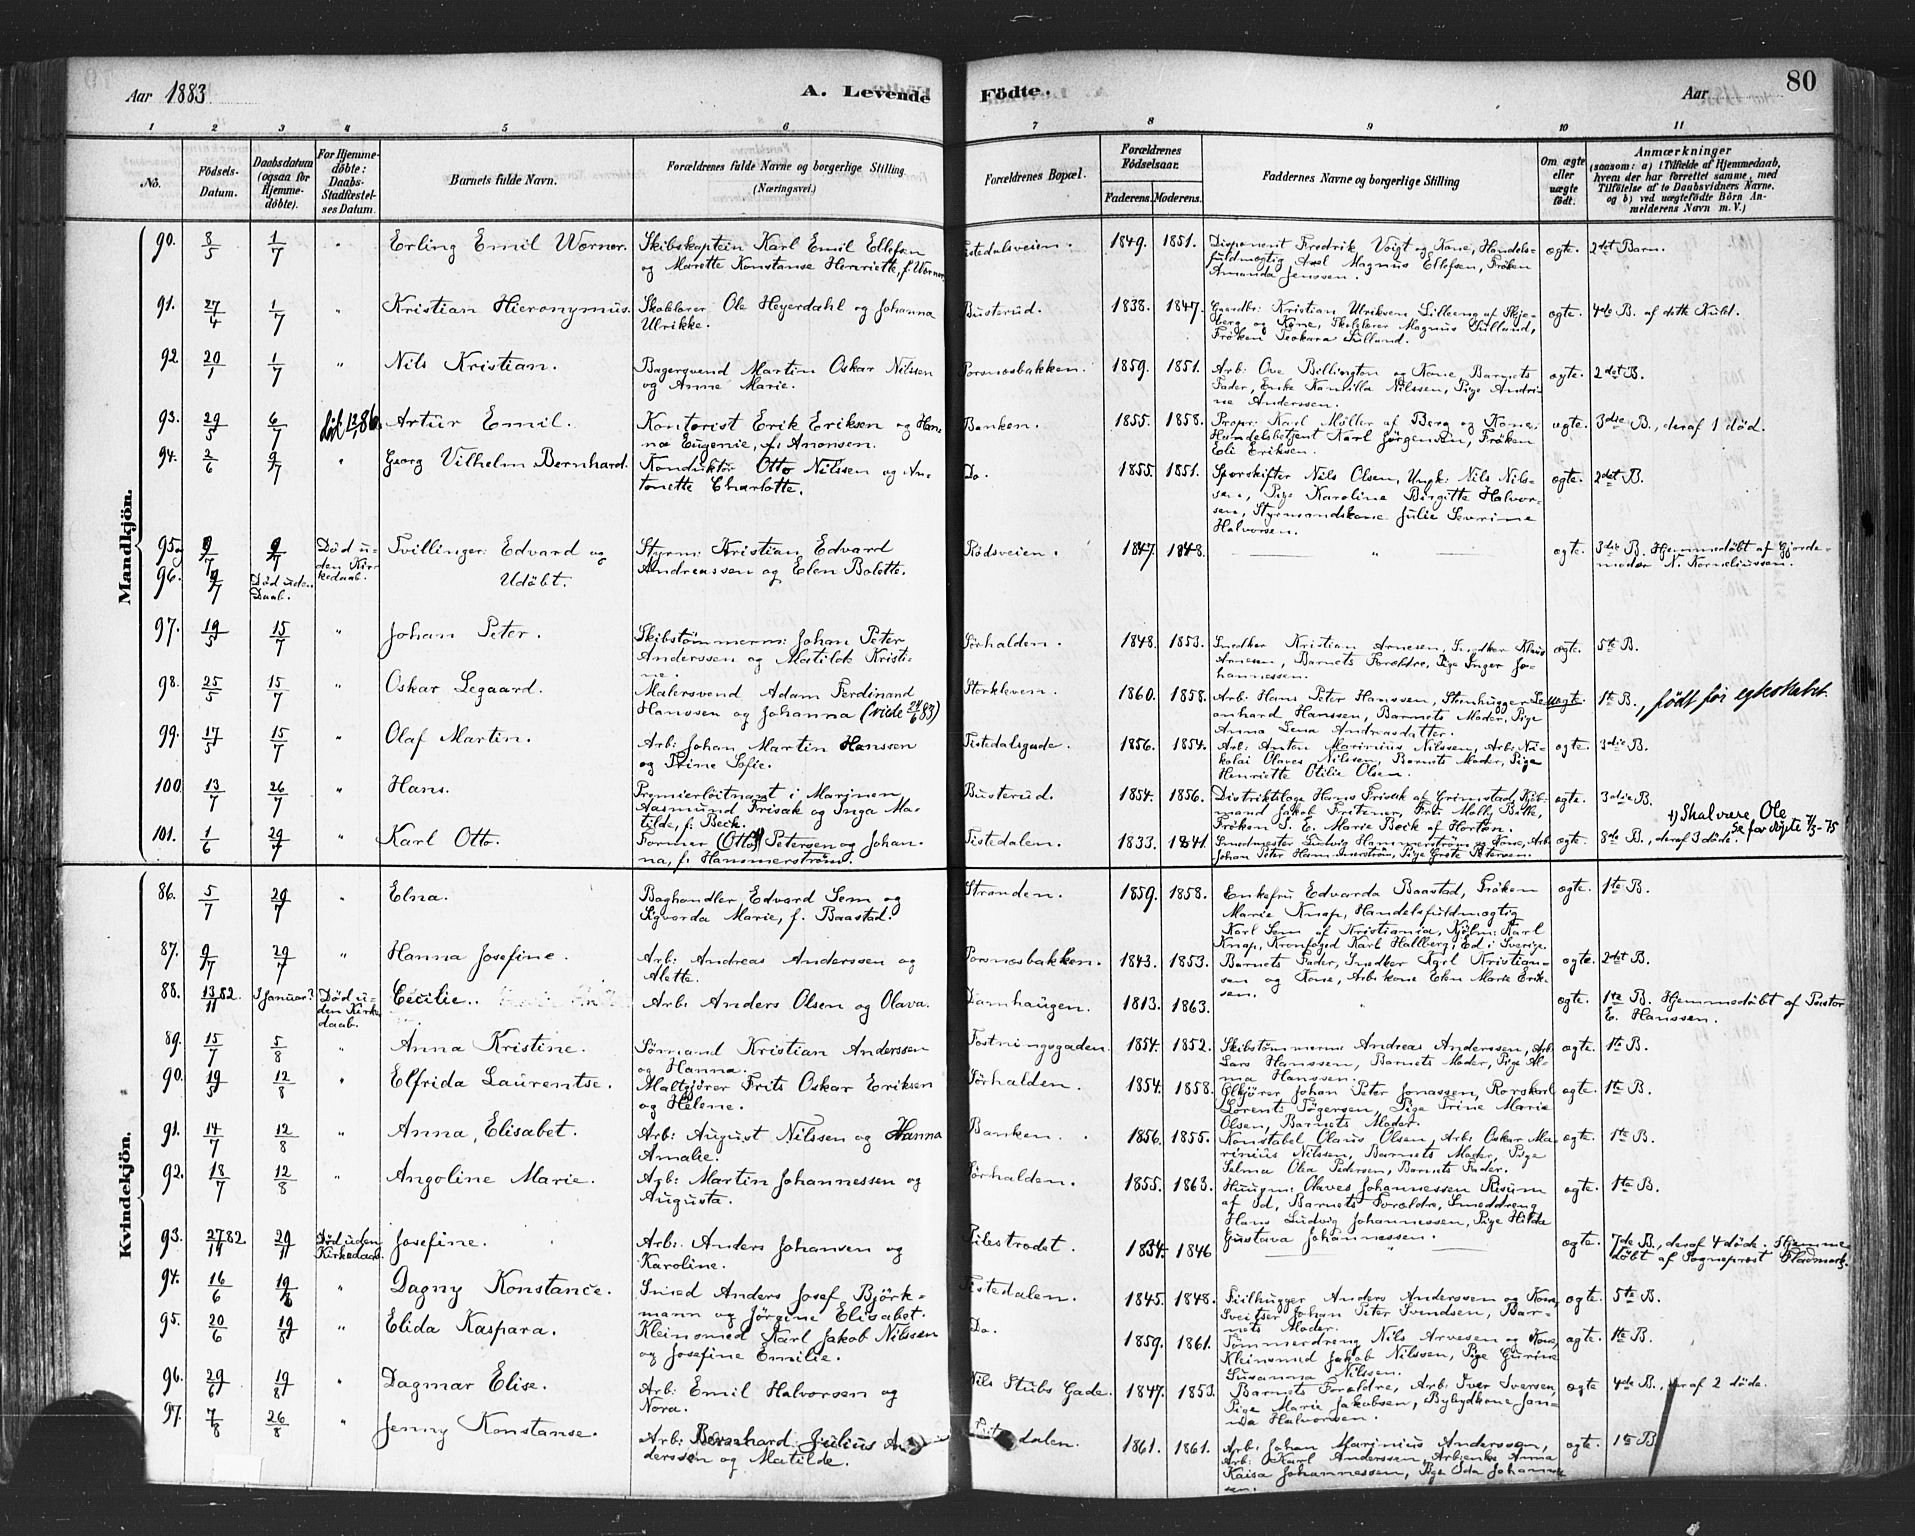 Aar 1883.
A. Levende Födte.
Aar
80
1 2 3 4 5 6 7 8 9 10 11
No.
Födsels-Datum.
Daabsdatum (ogsaa for Hjemme-döbte).
For Hjemme-döbte: Daabs-Stadfæstel-ses Datum.
Barnets fulde Navn.
Forældrenes fulde Navne og borgerlige Stilling (Næringsvei.)
Forældrenes Bopæl.
Forældrenes Födselsaar. Faderens. Moderens.
Faddernes Navne og borgerlige Stilling
Om ægte eller uægte födt.
Anmærkninger (saasom: a) i Tilfælde af Hjemmedaab, hvem der har forrettet samme, med Tilföielse af to Daabsvidners Navne. og b) ved uægtefödte Börn An-melderens Navn m. V.)
Mandkjön.
90. 8/5 1/7 " Erling Emil Werner. Skibskaptein Karl Emil Ellefsen og Marette Konstanse Henriette, f. Werner Tistedalsveien. 1849. 1851. Disponent Fredrik Voigt og Kone, Handels-fuldmægtig Axel Magnus Ellefsen, Frøken Amanda Jenssen. ægte. 2det Barn.
91. 27/4 1/7 " Kristian Hieronymus. Skolelærer Ole Heyerdahl og Johanna Ulrikke. Busterud. 1838. 1847. Gaardbr: Kristian Ulriksen Lilleeng af Skje-berg og Kone, Skolelærer Magnus Sulland, Frøken Teokara Sulland. ægte. 4de B. af dette Kuld.
92 20/1 1/7 " Nils Kristian. Bagersvend Martin Oskar Nilssen og Anne Marie. Porsnæsbakken. 1859. 1851. Arb: Ove Billington og Kone, Barnets Fader, Enke Kamilla Nilssen, Pige Andri-ne Anderssen. ægte. 2det B.
93. 29/5 6/7 Artur Emil. Kontorist Erik Eriksen og Han-na Eugenie, f. Anonsen. Banken. 1855. 1858. Propr: Karl Møller af Berg og Kone, Handelsbetjent Karl Jørgensen, Frøken Eli Eriksen. ægte. 3die B., deraf 1 død.
94. 2/6 9/7 " Georg Vilhelm Bernhard. Konduktør Otto Nilssen og An-tonette Charlotte. Do. 1855. 1851. Sporskifter Nils Olsen, Ungk: Nils Nils-sen, Pige Karoline Birgitte Halvor-sen, Styrmandskone Julie Severine Halvorsen. ægte. 2det B.
95 og 96. 9/7 9/7 9/7 Død uden Daab. Død u-den Kir-kedaab. Tvillinger: Edvard og Udøbt. Styrm: Kristian Edvard Andreassen og Elen Bolette. Rødsveien. 1847. 1848. " ægte. 3die B. Hjemmedøbt af Gjorde-moder N. Korneliussen.
97. 19/5 15/7 " Johan Peter. Skibstømmerm: Johan Peter Anderssen og Matilde Kristi-ne. Sørhalden. 1848. 1853. Snedker Kristian Arnesen, Snedker Klaus Arnesen, Barnets Forældre, Pige Inger Jo-hannessen. ægte. 5te B.
98. 25/5 15/7 " Oskar Segaard. Malersvend Adam Ferdinand Hanssen og Johanna (vide 24/6 83) Storkleven. 1860. 1858. Arb: Hans Peter Hanssen, Stenhugger Le-onhard Hanssen, Barnets Moder, Pige Anna Lena Andreasdatter. uægte. 1te B., født før egteskabet
99. 17/5 15/7 " Olaf Martin. Arb: Johan Martin Hanssen og Trine Sofie. Tistedalsgade. 1856. 1854. Arb: Anton Marinius Nilssen, Arb: Ni-kolai Olaves Nilssen, Barnets Moder, Pige Henriette Otilie Olsen. ægte. 3die B.
100. 13/7 26/7 " Hans. Premierløitnant i Marinen, Aasmund Frisak og Inga Ma-tilde, f. Beck. Busterud. 1854. 1856. Distriktslæge Hans Frisak af Grimstad, Kjøb-mand Jakob Fritzner, Frk: Molly Bakke, Frøken S. E. Marie Beck af Horten. ægte. 3die B.
101. 1/6 29/7 Karl Otto. Former (Otto) Petersen og Johan-na, f. Hammerstrøm. Tistedalen. 1833. 1841. Smedmester Ludvig Hammerstrøm og Kone, Arb: Johan Peter Hammerstrøm, Pige Grete Petersen. ægte. 8de B., deraf 3 døde. Skal være Ole
Kvindekjön.
86. 5/7 29/7 " Elna. Boghandler Edvard Sem og Sigvarda Marie, f. Baastad. Stranden. 1859. 1858. Enkefru Edvarda Baastad, Frøken Marie Knap, Handelsfuldmægtig Karl Sem af Kristiania, Kjøbm: Karl Knap, Kronfoged Karl Hallberg, Ed i Sverige. ægte. 1te B.
87. 9/7 29/7 " Hanna Josefine. Arb: Andreas Anderssen og Alette. Porsnæsbakken. 1843. 1853. Barnets Fader, Snedker Karl Kristian-sen og Kone, Arb: kone Elen Marie Erik-sen. ægte. 2det B.
88. 13/11 82. Januar? Død u-den Kirke-daab. Cecilie. Arb: Anders Olsen og Olava. Damhaugen. 1813. 1863. " ægte. 1te B. Hjemmedøbt af Pastor E. Hanssen.
89. 15/7 5/8 " Anna Kristine. Sømand Kristian Anderssen og Hanna. Fæstningsgaden. 1854. 1852. Skibstømmerm: Andreas Anderssen, Arb: Lars Hanssen, Barnets Moder, Pige Al-ma Hanssen. ægte. 1te B.
90. 19/5 12/8 " Elfrida Laurentse. Maltgjører Frits Oskar Eriksen og Helene. Sørhalden. 1854. 1858. Ølkjører Johan Peter Jonassen, Rorskarl Lorents Tøgersen, Pige Trine Marie Olsen, Barnets Moder. ægte. 1te B.
91. 14/7 12/8 " Anna Elisabet. Arb: August Nilssen og Hanna Amalie. Banken. 1856. 1855. Konstabel Olaus Olsen, Arb: Oskar Ma-rinius Nilssen, Barnets Moder, Pige Selma Olea Pedersen, Barnets Fader. ægte. 1te B.
92. 18/7 12/8 " Angoline Marie. Arb: Martin Johannessen og Augusta. Sørhalden. 1855. 1863. Huusm: Olaves Johannessen Risum af Id, Barnets Forældre, Smeddreng Hans Ludvig Johannessen, Pige Hilda Gustava Johannessen. ægte. 1te B.
93. 27/11 82. 29/11 Død uden Kirkedaab. Josefine. Arb: Anders Johansen og Karoline. Pilestrædet. 1834. 1846 " ægte. 7de B., deraf 4 døde. Hjemme-døbt af Sogneprest Fladmark.
94. 16/6 19/8 " Dagny Konstance. Smed Anders Josef Björk-mann og Jørgine Elisabet. Tistedalen. 1845. 1848. Fiilhugger Anders Anderssen og Kone, Sveitser Johan Peter Svendsen, Bar-nets Moder. ægte. 5te B.
95. 20/6 19/8 " Elida Kaspara. Kleinsmed Karl Jakob Nilssen og Josefine Emilie. Do. 1859. 1861. Tømmerdreng Nils Arvesen og Kone, Kleinsmed Jakob Nilssen, Pige Gurine Susanna Nilssen. ægte. 1te B.
96. 29/6 19/8 " Dagmar Elise. Arb: Emil Halvorsen og Nora. Nils Stubs Gade. 1847. 1853. Barnets Forældre, Arb: Iver Iversen, Pige Marie Jakobsen, Bybudkone Jan-na Halvorsen. ægte 4de B., deraf 2 døde.
97. 7/8 26/8 " Jenny Konstanse. Arb: Bernhard Julius An-derssen og Matilde. Tistedalen. 1861. 1861. Arb: Johan Marinius Anderssen, Arb: O Karl Anderssen, Arb:enke Anna Kaisa Johannessen, Pige Ida Johannes-sen. ægte. 1te B.